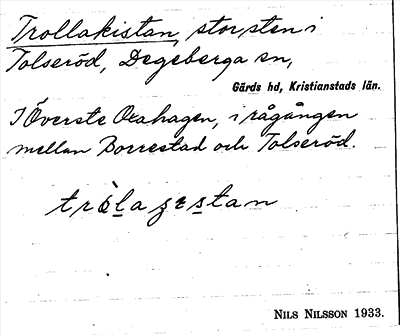 Trollakistan, stor sten i
Tolseröd, Degeberga sn,
Gärds hd, Kristianstads län.
I Överste Oxahagen, i rågången
mellan Borrestad och Tolseröd.
NILS NILSSON 1933.